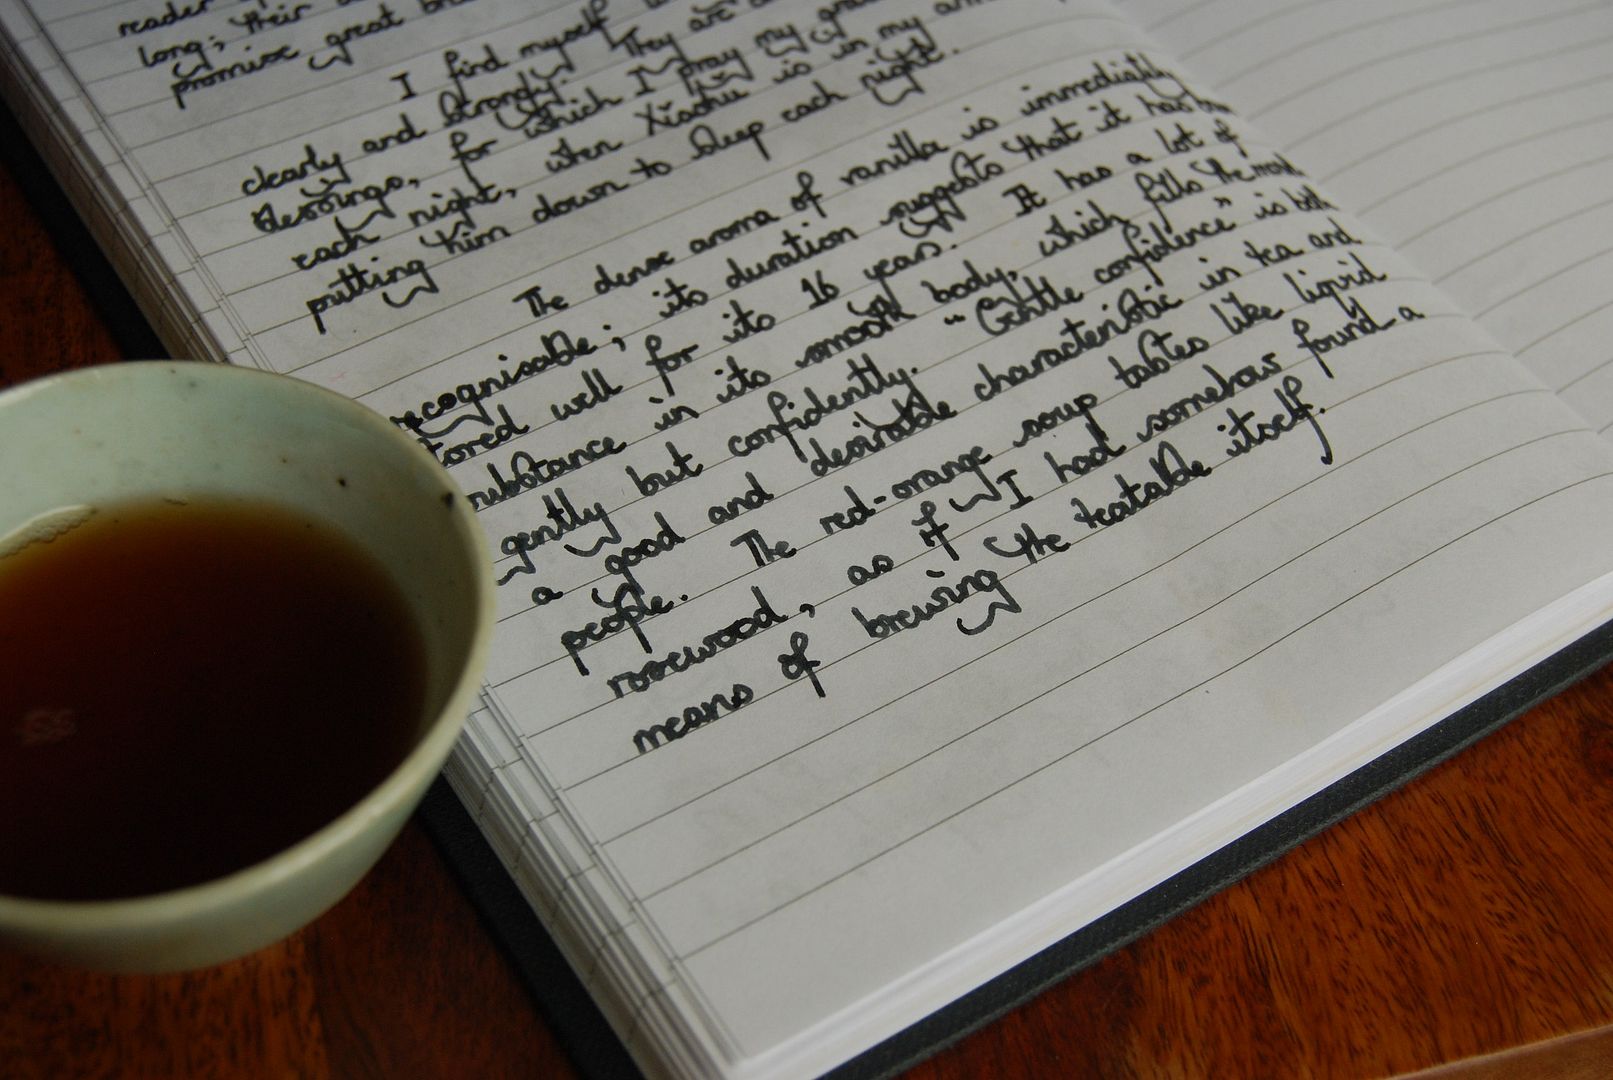 reader
long; their
promise great
I find myself
clearly and strongly. They are
blessings, for which I pray my
each night, when Xiaohu is in my
putting him down to sleep each night.
The dense aroma of vanilla is immediately
recognisable; its duration suggests that it has been
stored well for its 16 years. It has a lot of
substance in its smooth body, which fills the mouth
gently but confidently. "Gentle confidence" is both
a good and desirable characteristic in tea and
people. The red-orange soup tastes like liquid
rosewood, as if I had somehow found a
means of brewing the teatable itself.